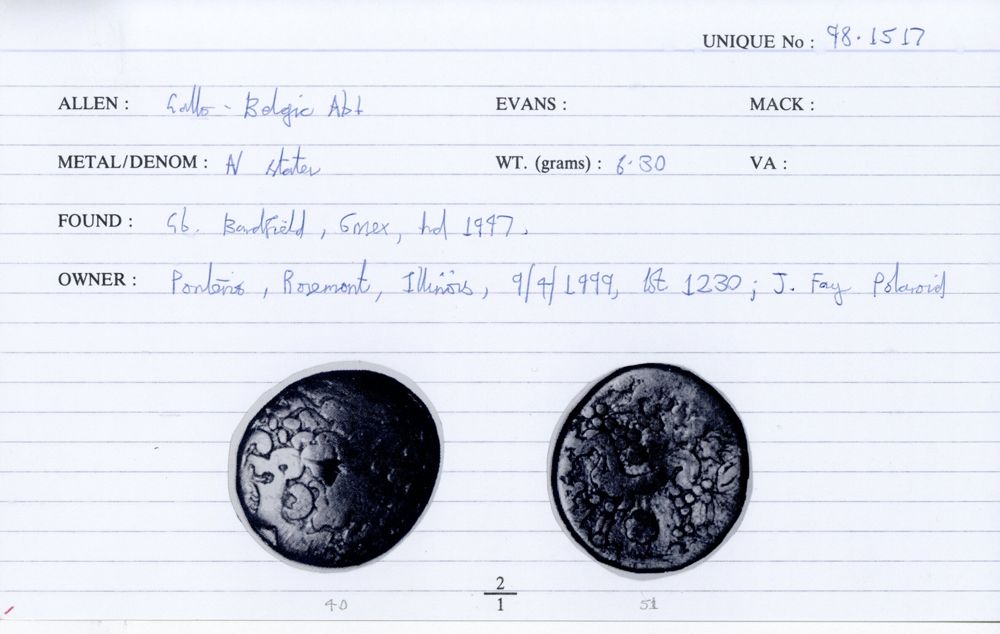 UNIQUE No : 98.1517
ALLEN : Gallo - Belgic Ab1 EVANS : MACK :
METAL/DENOM : N stater WT. (grams) : 6.30 VA :
FOUND : Gt. Bardfield, Essex, hd 1997.
OWNER : Ponterio, Rosemont, Illinois, 9/4/1999, lot 1230; J. Fay Polaroid
2
1
40 51